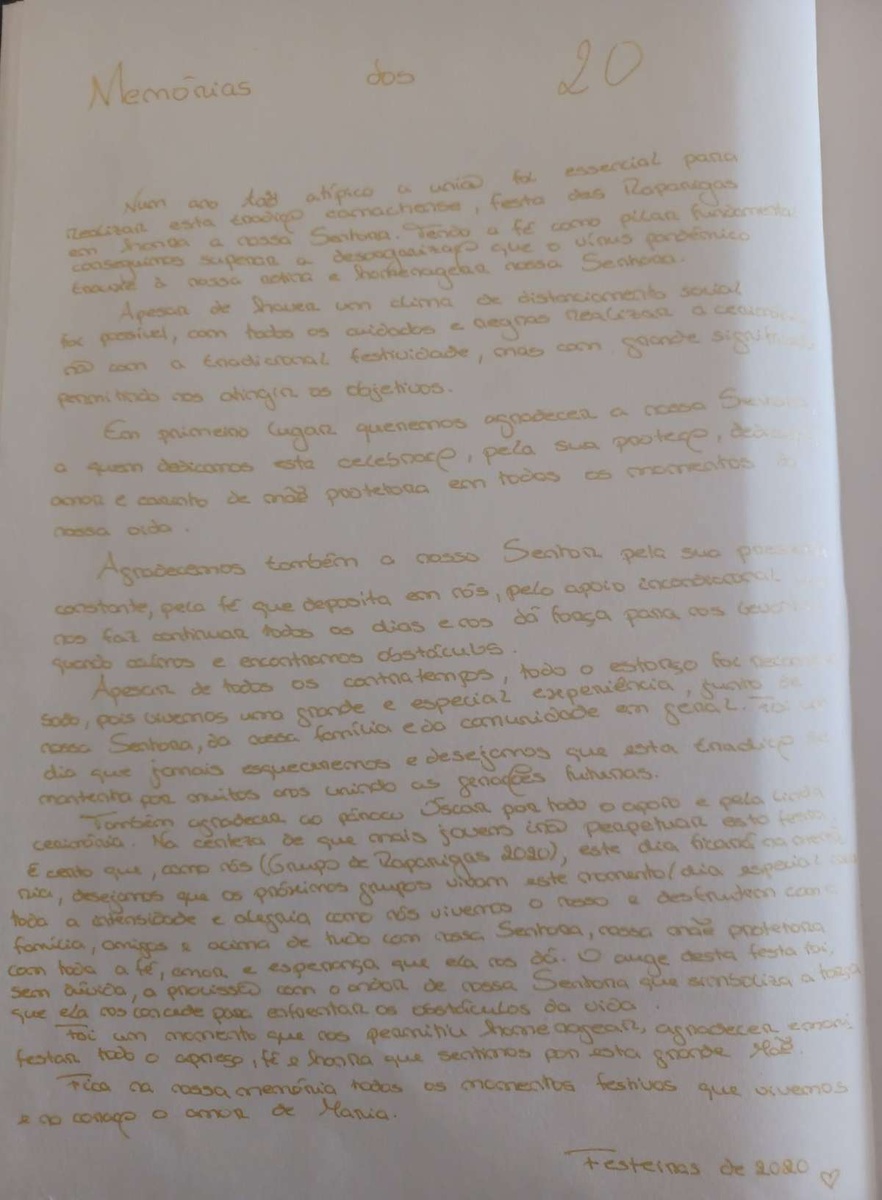 Memórias dos 20
Num ano tão atípico a união foi essencial para
realizar esta tradição camachense, festa das Raparigas
em honra a nossa Senhora. Tendo a fé como pilar fundamental
conseguimos superar a desorganização que o vírus pandémico
trouxe à nossa rotina e homenagear nossa Senhora.
Apesar de haver um clima de distanciamento social
foi possível, com todos os cuidados e regras realizar a
não com a tradicional festividade, mas com grande
permitindo nos atingir os objetivos.
Em primeiro lugar queremos agradecer a nossa
a quem dedicamos esta celebração, pela sua proteção,
amor e carinho de mãe protetora em todos os momentos
nossa vida.
Agradecemos também a nosso Senhor pela sua
constante, pela fé que deposita em nós, pelo apoio incondicional
nos faz continuar todos os dias e nos dá força para nos
quando caímos e encontramos obstáculos.
Apesar de todos os contratempos, todo o esforço foi
sado, pois vivemos uma grande e especial experiência, junto
nossa Senhora, da nossa família e da comunidade em geral. Foi um
dia que jamais esqueceremos e desejamos que esta tradição se
mantenha por muitos anos unindo as gerações futuras.
Também agradecer ao pároco Óscar por todo o apoio e pela linda
cerimónia. Na certeza de que mais jovens irão perpetuar esta festa,
É certo que, como nós (Grupo de Raparigas 2020), este dia ficará na
ria, desejamos que os próximos grupos vivam este momento/dia especial com
toda a intensidade e alegria como nós vivemos o nosso e desfrutem com a
família, amigos e acima de tudo com nossa Senhora, nossa mãe protetora
com toda a fé, amor e esperança que ela nos dá. O auge desta festa foi,
sem dúvida, a procissão com o andor de nossa Senhora que simboliza a força
que ela nos concede para enfrentar os obstáculos da vida.
Foi um momento que nos permitiu homenagear, agradecer e mani
festar todo o apreço, fé e honra que sentimos por esta grande Mãe.
Fica na nossa memória todos os momentos festivos que vivemos
e no coração o amor de Maria.
Festeiras de 2020 ♡